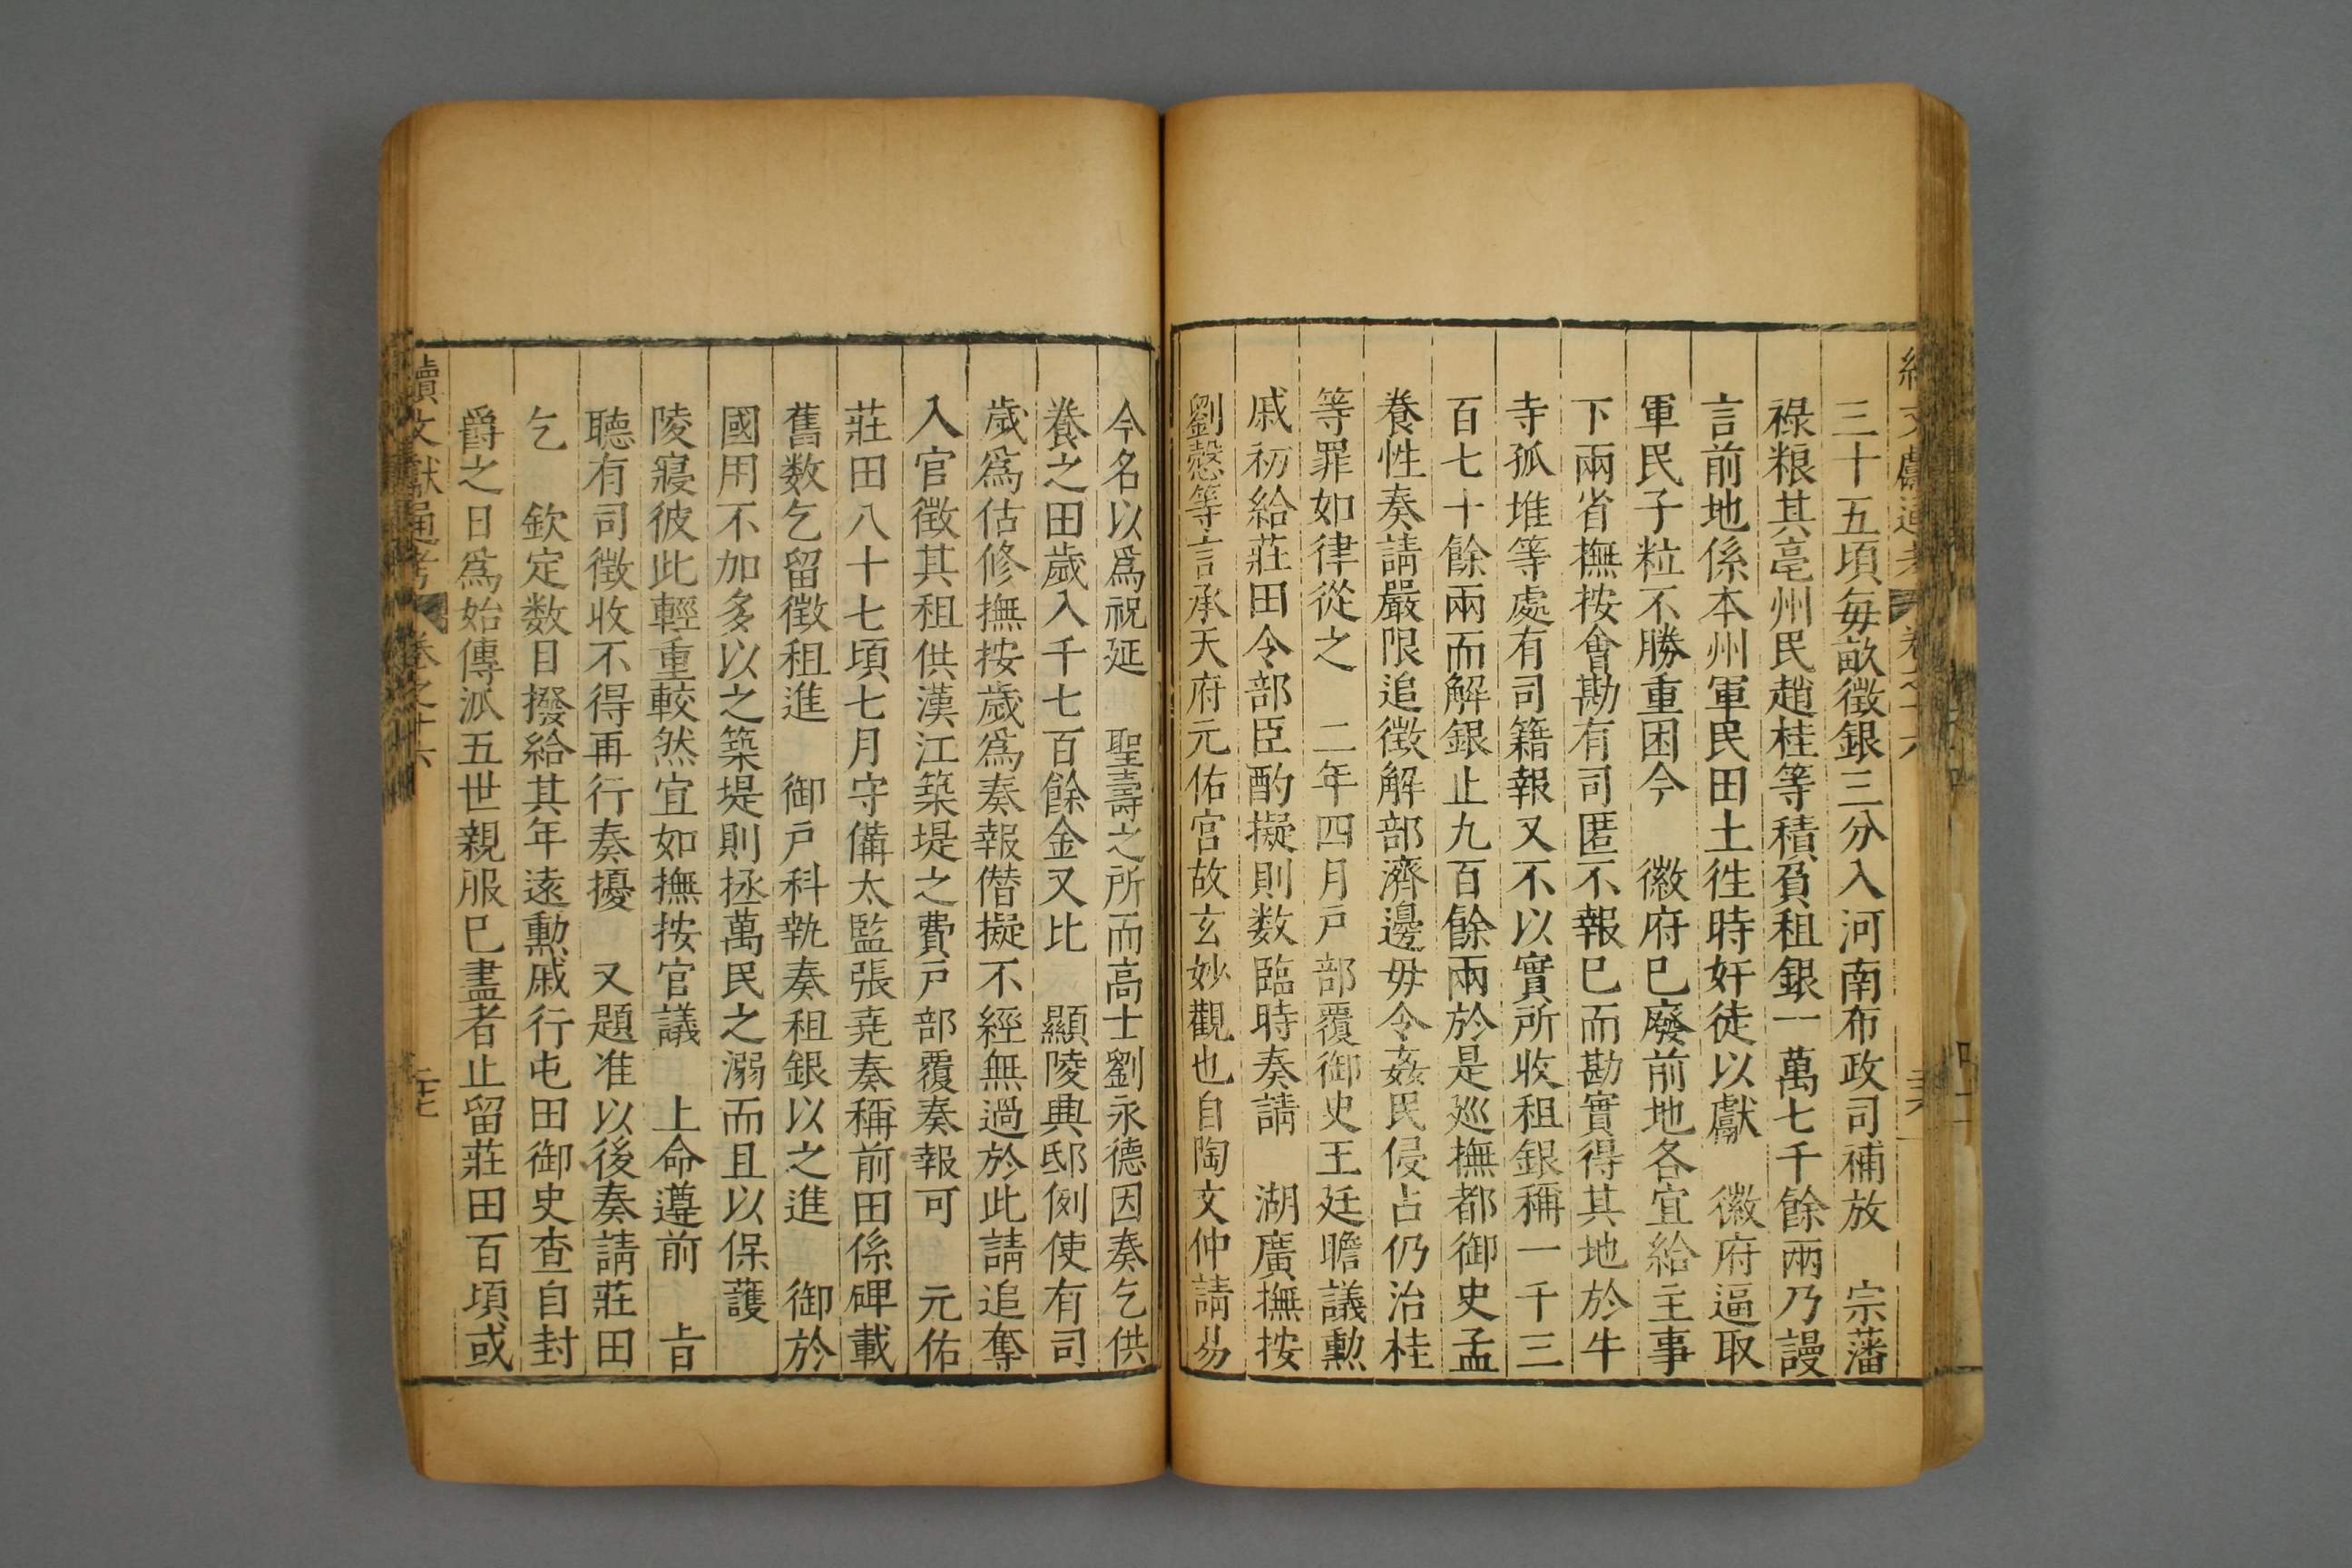 三十五頃每畝徵銀三分入河南布政司補放　宗藩
祿粮其亳州民趙桂等積負租銀一萬七千餘兩乃謾
言前地係本州軍民田土徃時奸徒以獻　徽府逼取
軍民子粒不勝重困今　徽府巳廢前地各宜給主事
下兩省撫按會勘有司匿不報巳而勘實得其地於牛
寺孤堆等處有司籍報又不以實所收租銀稱一千三
百七十餘兩而解銀止九百餘兩於是廵撫都御史孟
養性奏請嚴限追徵解部濟邊毋令姦民侵占仍治桂
等罪如律從之　二年四月戶部覆御史王廷瞻議勲
戚初給莊田令部臣酌擬則数臨時奏請　湖廣撫按
劉慤等言承天府元佑宮故玄妙觀也自陶文仲請易
今名以爲祝延　聖壽之所而高士劉永德因奏乞供
養之田歲入千七百餘金又比　顯陵典邸例使有司
歲爲估修撫按歲爲奏報僣擬不經無過於此請追奪
入官徵其租供漢江築堤之費戶部覆奏報可　元佑
莊田八十七頃七月守備太監張堯奏稱前田係碑載
舊数乞留徵租進　御戶科執奏租銀以之進　御於
國用不加多以之築堤則拯萬民之溺而且以保護
陵寢彼此輕重較然宜如撫按官議　上命遵前　旨
聽有司徵收不得再行奏擾　又題准以後奏請莊田
乞　欽定数目撥給其年遠勲戚行屯田御史查自封
爵之日爲始傳派五世親服巳盡者止留莊田百頃或
續文獻通考　卷之十六